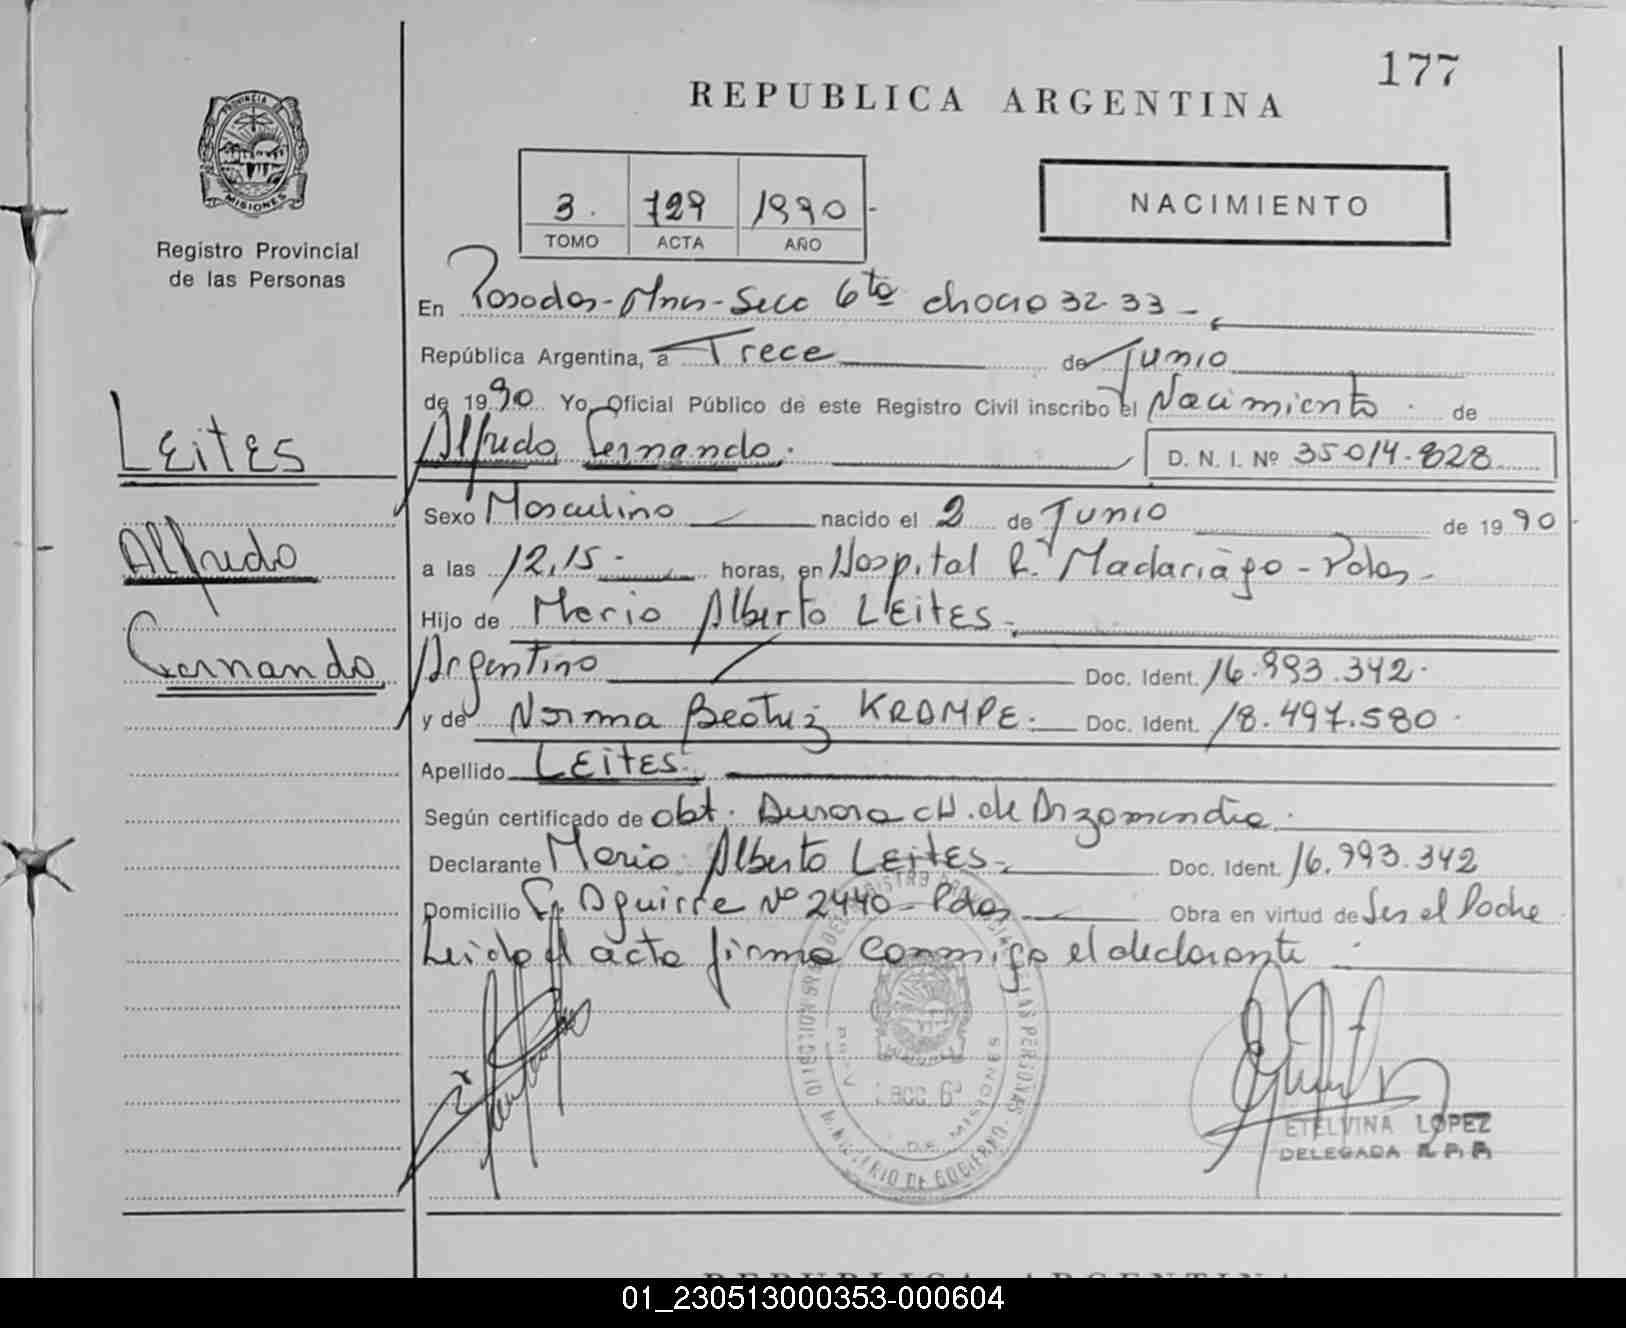 177
REPUBLICA ARGENTINA
PROVINCIA DE
MISIONES
Registro Provincial
de las Personas
3. 729 1990
TOMO ACTA AÑO
NACIMIENTO
En Posadas-Mnes-Secc 6ta chacra 32-33
República Argentina, a Trece de Junio
de 1990 Yo, Oficial Público de este Registro Civil inscribo el Nacimiento de
Alfredo Fernando. D. N. I. Nº 35014.828
Leites
Alfredo
Fernando
Sexo Masculino nacido el 2 de Junio de 1990
a las 12,15 horas, en Hospital R. Madariaga - Pdas.
Hijo de Mario Alberto LEITES.
Argentino Doc. Ident. 16.993.342.
y de Norma Beatriz KRAMPE. Doc. Ident. 18.497.580.
Apellido LEITES.
Según certificado de obt. Aurora CH. de Arzamendia.
Declarante Mario Alberto LEITES. Doc. Ident. 16.993.342
Domicilio Aguirre Nº 2440 - Pdas Obra en virtud de Ser el Padre
Leida el acta firma conmigo el declarante
REGISTRO PROVINCIAL DE LAS PERSONAS
MINISTERIO DE GOBIERNO
DE MISIONES
SECC. 6ª
ETELVINA LOPEZ
DELEGADA
REPUBLICA ARGENTINA
01_230513000353-000604